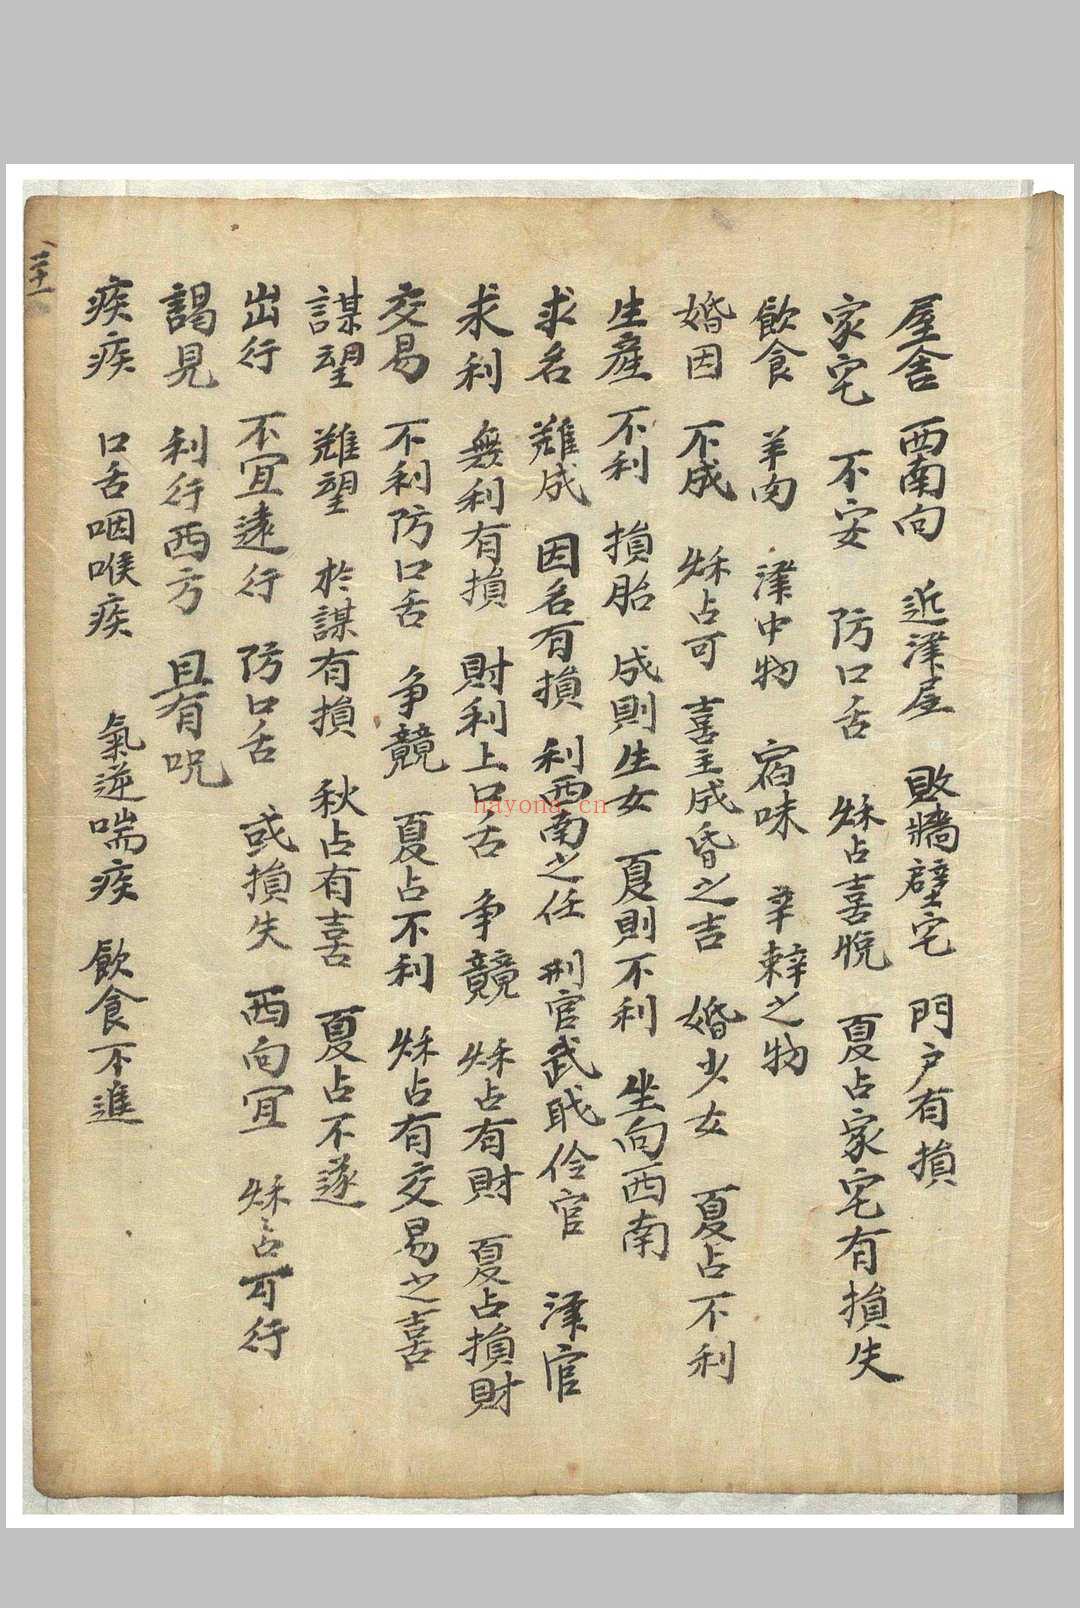 屋舍 西南向 近澤屋 敗牆壁宅 門户有損
家宅 不安 防口舌 秌占喜悅 夏占家宅有損失
飲食 羊肉 澤中物 宿味 辛辣之物
婚因 不成 秌占可 喜主成昏之吉 婚少女 夏占不利
生產 不利 損胎 成則生女 夏則不利 坐向西南
求名 難成 因名有損 利西南之任 刑官武職伶官 澤官
求利 無利有損 財利上口舌 争競 秌占有財 夏占損財
交易 不利防口舌 争競 夏占不利 秌占有交易之喜
謀望 難望 於謀有損 秋占有喜 夏占不遂
出行 不宜遠行 防口舌 或損失 西向宜 秌占可行
謁見 利行西方 且有咒
疾疾 口舌咽喉疾 氣逆喘疾 飲食不進
hayona.cn